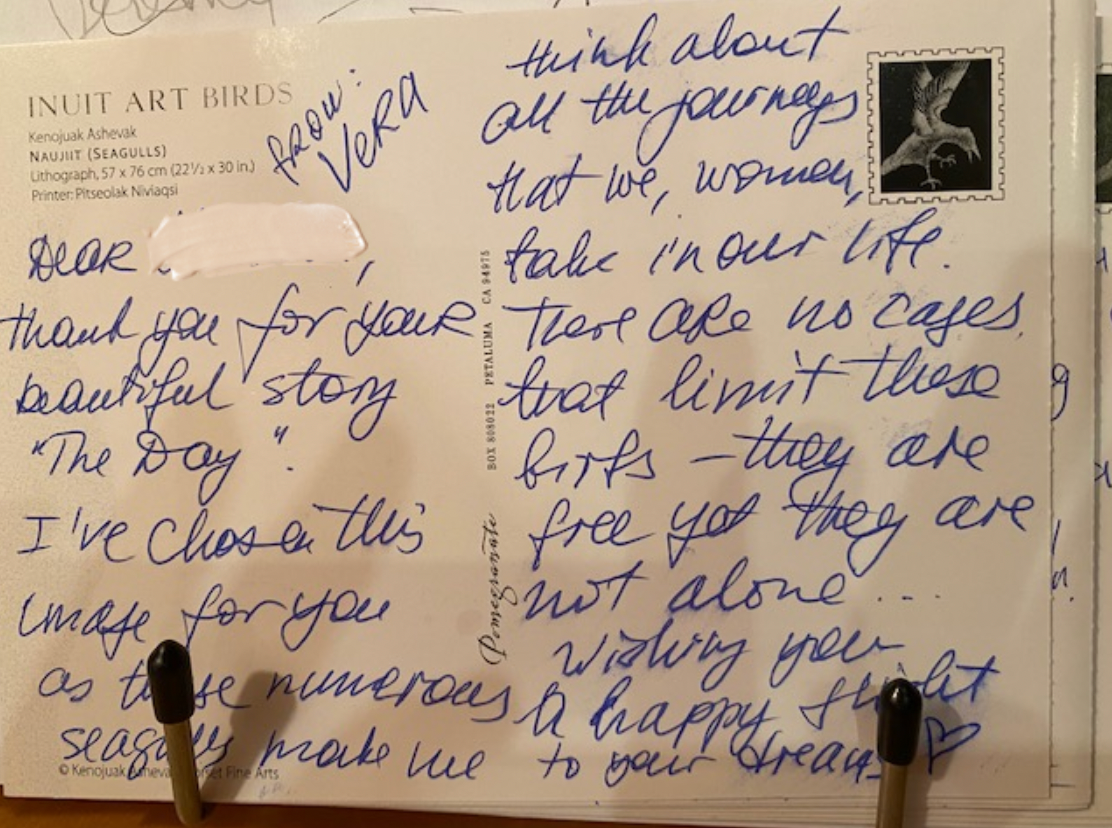 INUIT ART BIRDS
Kenojuak Ashevak
NAUJIIT (SEAGULLS)
Lithograph, 57 x 76 cm (22½ x 30 in.)
Printer: Pitseolak Niviaqsi
from:
VERA
Dear
thank you for your
beautiful story
"The Day".
I've chosen this
image for you
as these numerous
seagulls make me
© Kenojuak Ashevak Dorset Fine Arts
Pomegranate BOX 808022 PETALUMA CA 94975
think about
all the journeys
that we, women,
take in our life.
There are no cages
that limit these
birds – they are
free yet they are
not alone...
Wishing you
a happy flight
to your dreams ♡